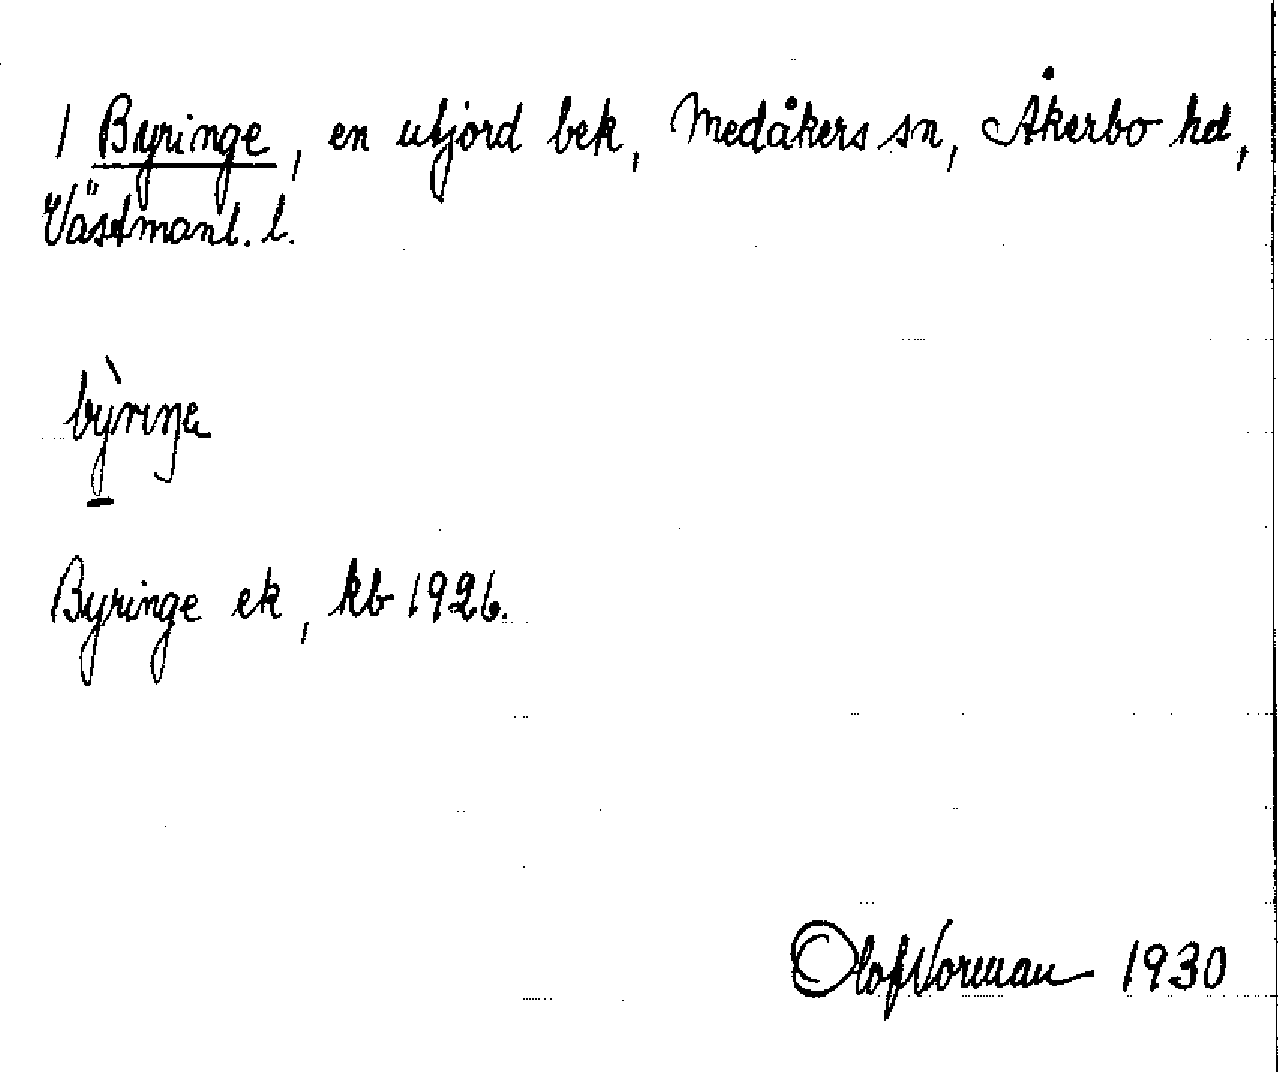 1 Byringe, en utjord bek, Medåkers sn, Åkerbo hd,
Västmanl. l.
bỳrıŋa
Byringe ek, kb 1926.
Olof Norman 1930